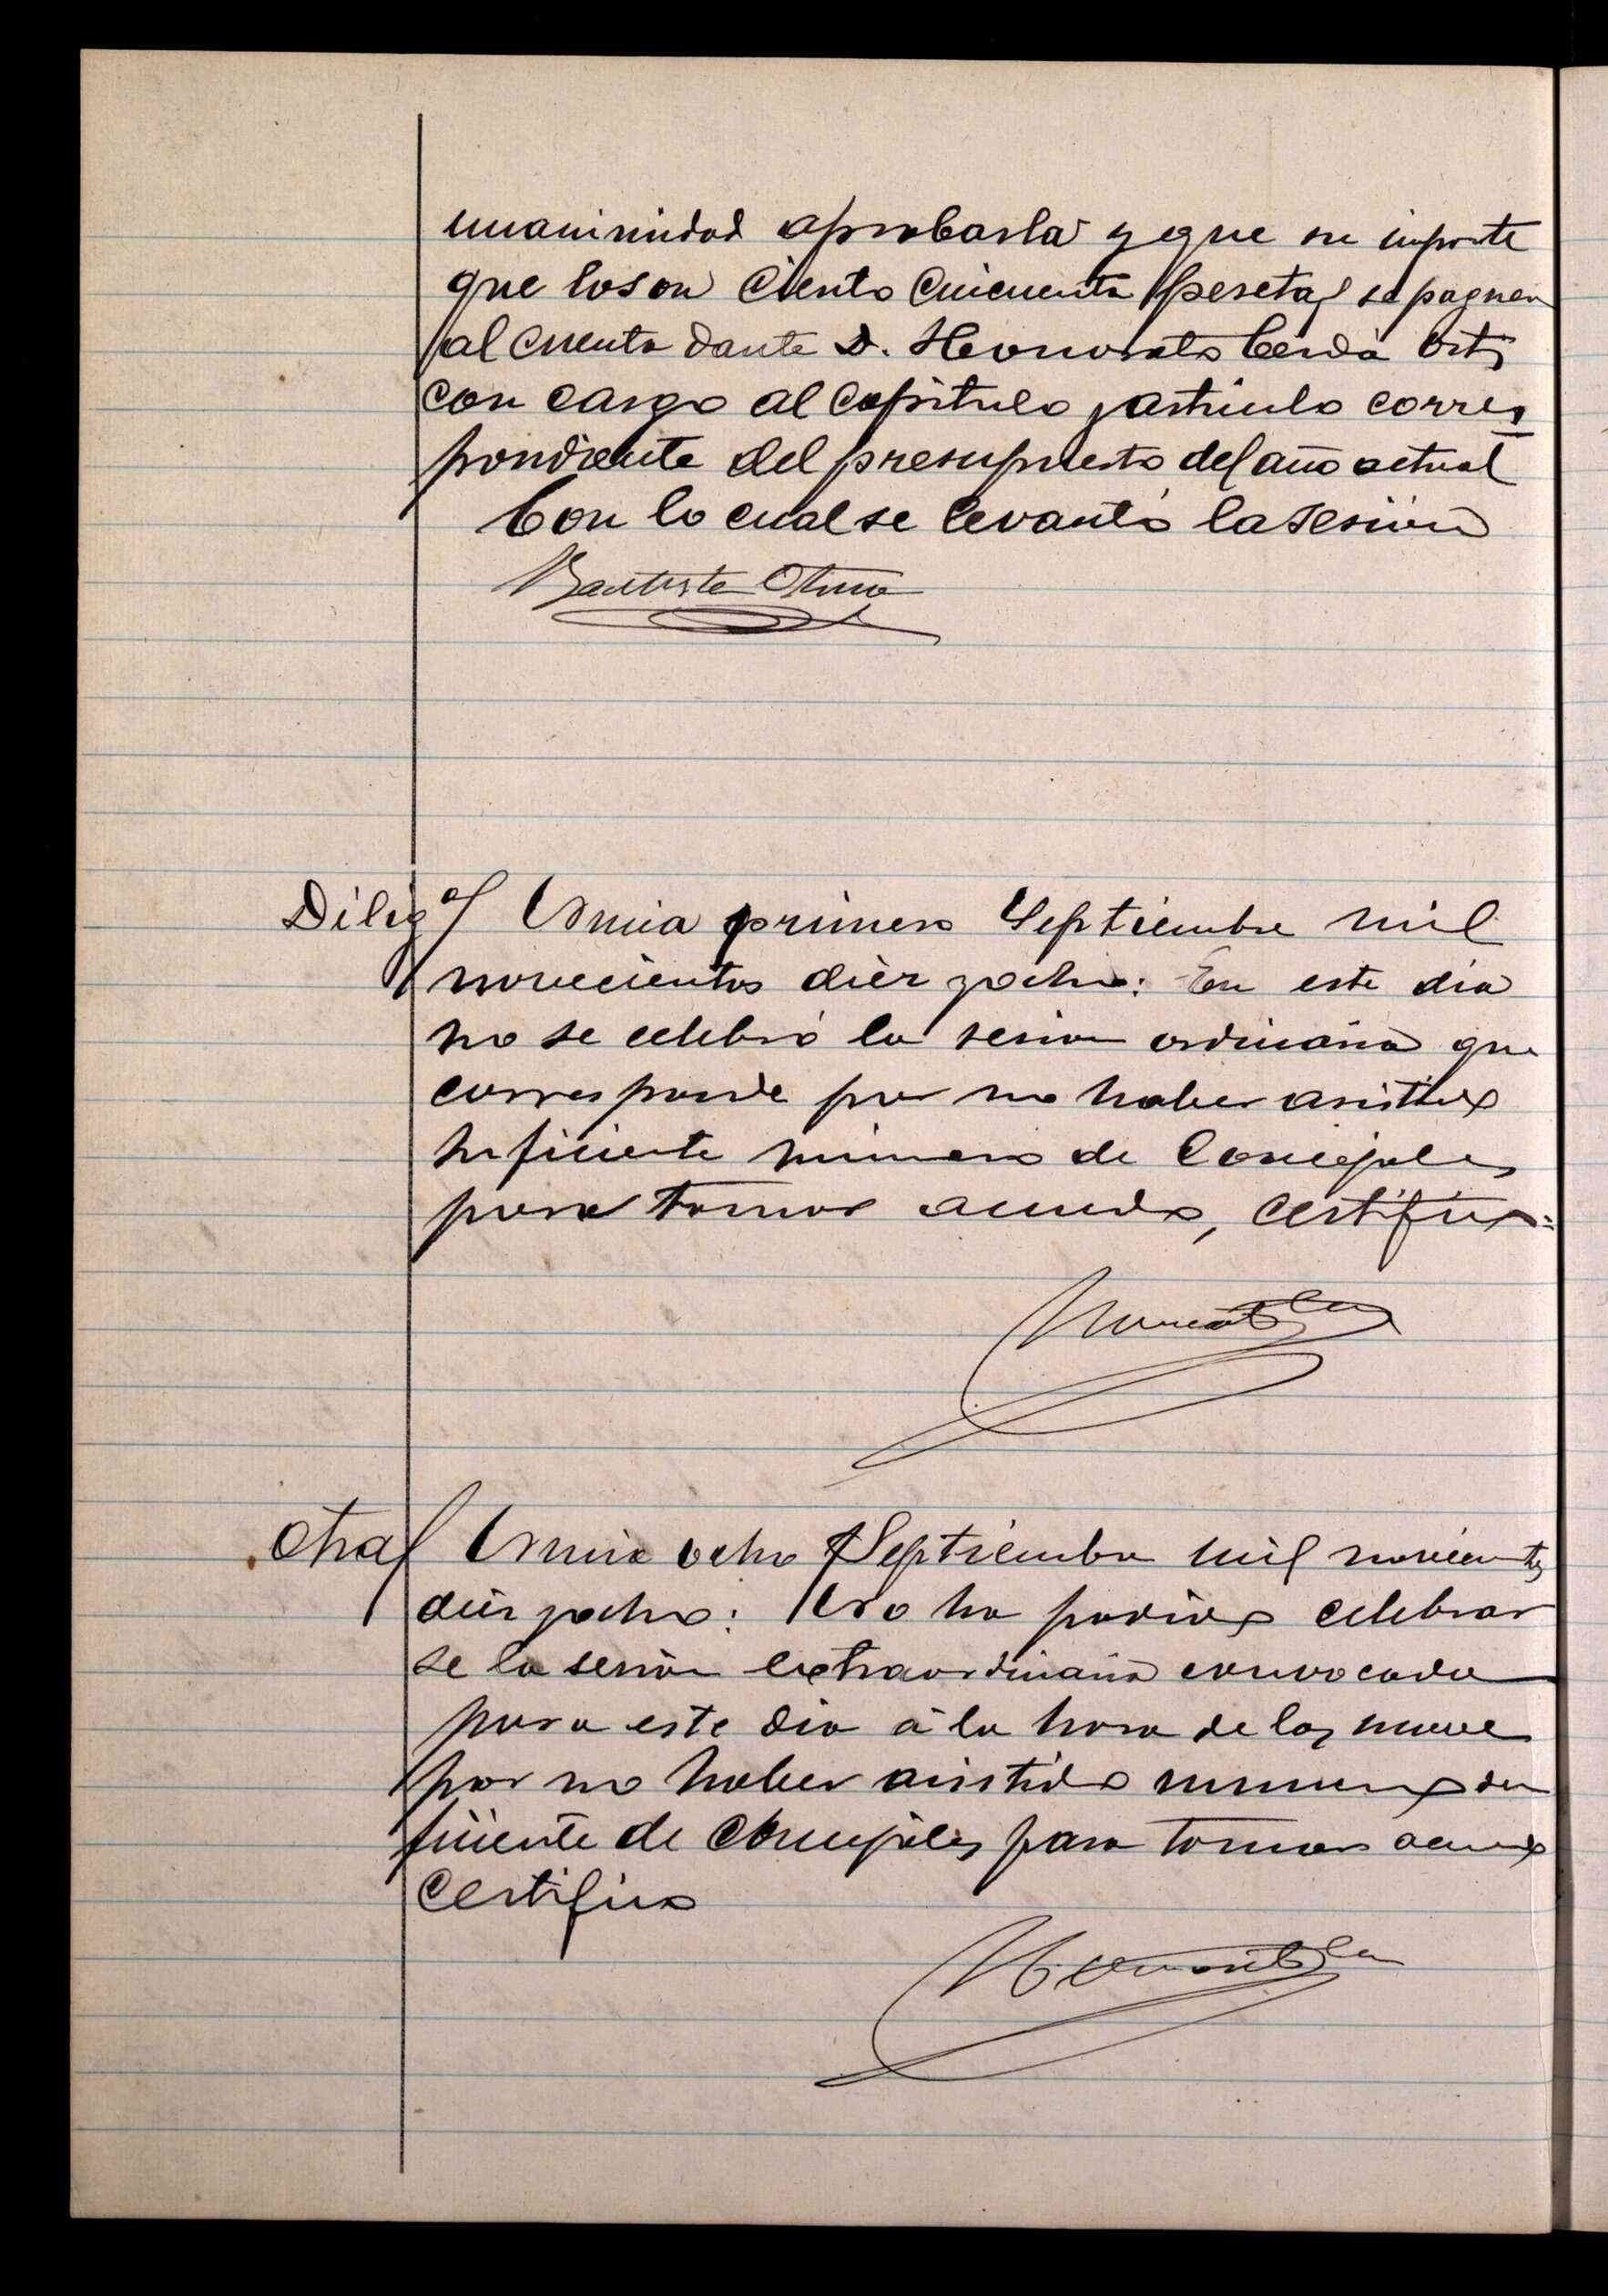 unanimidad aprobarla y que su importe
que loson Ciento Cincuenta pesetas se paguen
al cuenta dante D. Honorato Cerdá Ortiz
con cargo al capitulo y articulo corres
pondiente del presupuesto del año actual
Con lo cual se levantó la sesión
Bautista
Diligª Usmia primero Septiembre mil
novecientos diez y ocho: En este dia
no se celebró la sesion ordinaria que
corresponde por no haber asistido
suficiente número de Concejales
para tomar acuerdo, certifico=
Otra Usmia ocho Septiembre mil novecientos
diez y ocho: No ha podido celebrar
se la sesión extraordinaria convocada
para este dia á la hora de las nueve
por no haber asistido numero su
ficiente de Concejales para tomar acuerdo
Certifico